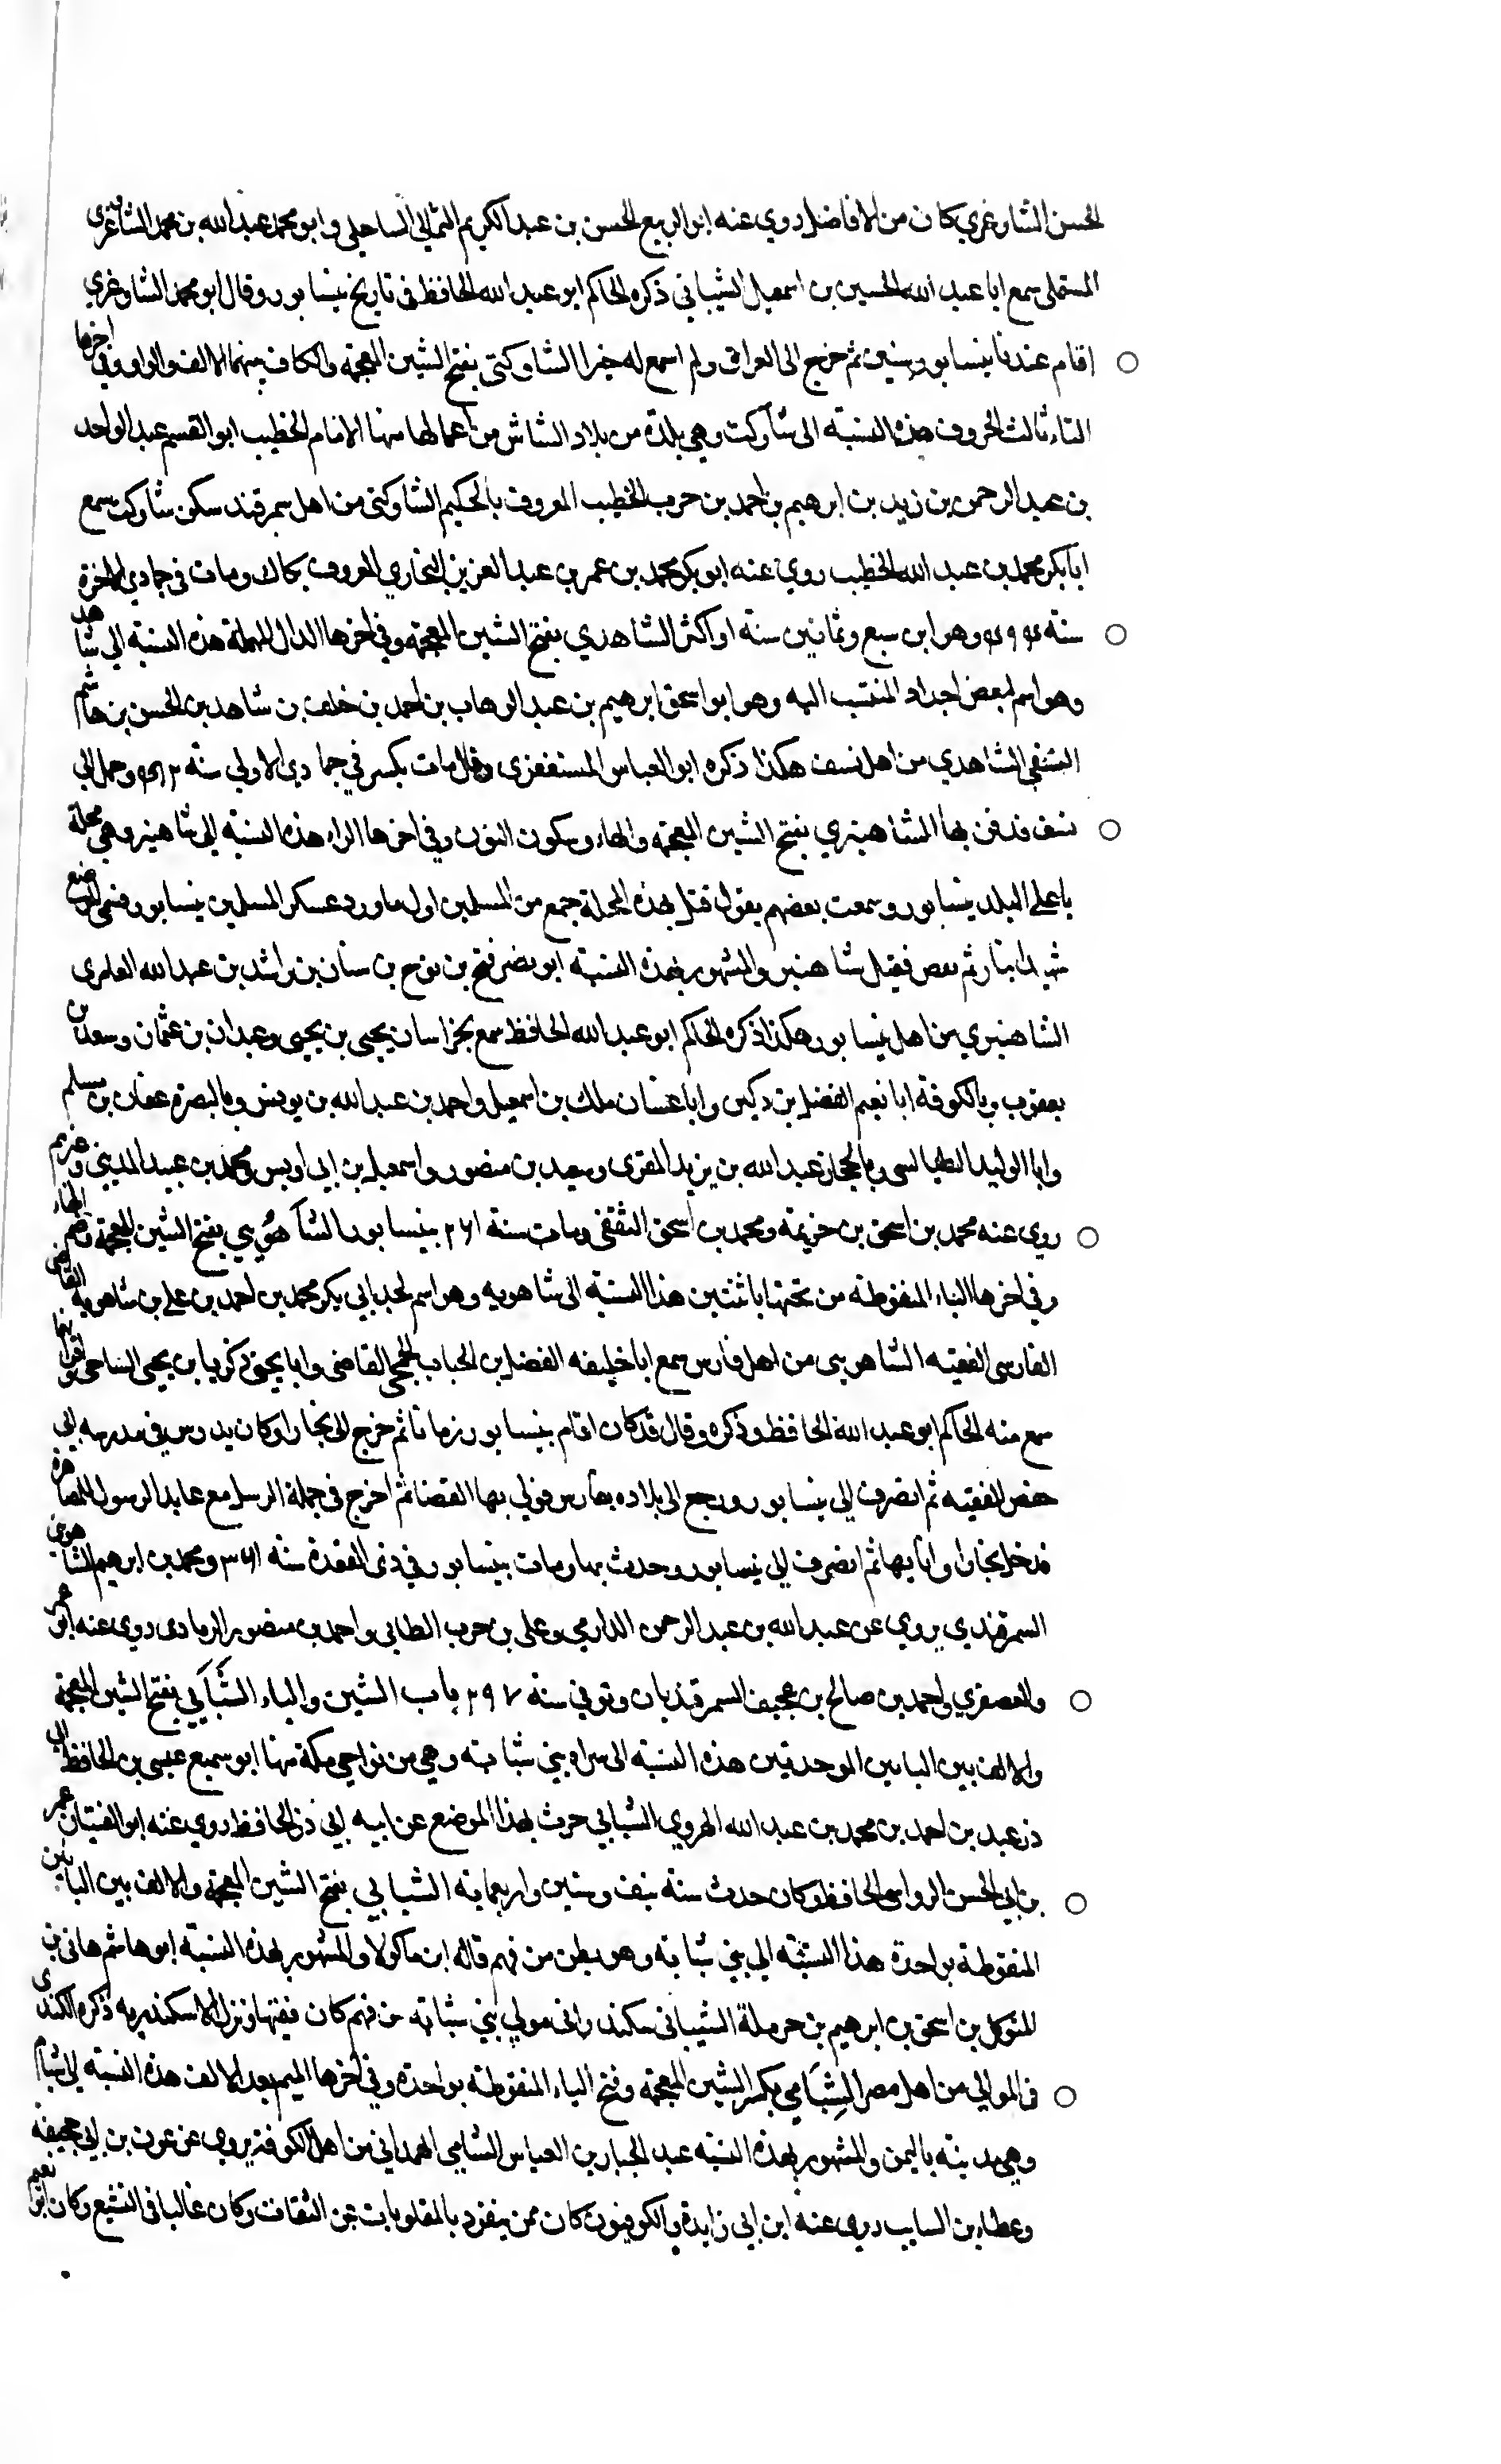 الحسن الشاوغري كان من الافاضل روي عنه ابو الربيع الحسن بن عبد الكريم الساحلي وابو محمد عبد الله بن محمد الشاوغري
المستملي سمع ابا عبد الله الحسين بن اسمعيل الشيباني ذكره الحاكم ابو عبد الله الحافظ في تاريخ نيسابور وقال ابو محمد الشاوغري
اقام عندنا بنيسابور سنين ثم خرج الى العراق ولم اسمع له خبرا الشاوكتى بفتح الشين المعجمة والكاف بينهما الالف والواو وفي اخرها
التاء ثالث الحروف هذه النسبة الى شاوكت وهي بلدة من بلاد الشاش من اعمالها منها الامام الخطيب ابو القسم عبد الواحد
بن عبد الرحمن بن زيد بن ابرهيم بن احمد بن حرب الخطيب المعروف بالحكيم الشاوكتى من اهل سمرقند سكن شاوكت سمع
ابا بكر محمد بن عبد الله الخطيب روي عنه ابو بكر محمد بن عمر بن عبد العزيز البخاري المعروف بكاك ومات في جمادي الاخرة
سنة ٤٩٤ وهو ابن سبع وثمانين سنة او اكثر الشاهدي بفتح الشين المعجمة وفي اخرها الدال المهملة هذه النسبة الي شاهد
وهو اسم لبعض اجداد المنتسب اليه وهو ابو اسحق ابرهيم بن عبد الوهاب بن احمد بن خلف بن شاهد بن الحسن بن هاشم
النسفي الشاهدي من اهل نسف هكذا ذكره ابو العباس المستغفري وقال مات بكس في جمادي الاولي سنة وحمل الي
نسف فدفن بها الشاهنبري بفتح الشين المعجمة والهاء وسكون النون وفي اخرها الراء هذه النسبة الي شاهنبر وهي محلة
باعلي البلد بنيسابور وسمعت بعضهم يقول قتل بهذه المحلة جمع من المسلمين اول ما ورد عسكر المسلمين نيسابور فسمي الموضع
ثم فقيل شاهنبر والمشهور بهذه النسبة ابو نصر فتح بن نوح بن سنان بن راشد بن عبد الله العامري
الشاهنبري من اهل نيسابور هكذا ذكره الحاكم ابو عبد الله الحافظ سمع بخراسان يحيى بن يحيى وعبدان بن عثمان وسعد بن
يعقوب وبالكوفة ابا نعيم الفضل بن دكين وابا غسان ملك بن اسمعيل واحمد بن عبد الله بن يونس وبالبصرة عفان بن مسلم
وابا الوليد الطيالسى وبالحجاز عبد الله بن يزيد المقرى وسعيد بن منصور واسمعيل بن ابي اويس ومحمد بن عبيد المديني وغيرهم
روي عنه محمد بن اسحق بن خزيمة ومحمد بن اسحق الثقفي ومات سنة ٢٦١ بنيسابور الشاهويي بفتح الشين المعجمة وضم الهاء
وفي اخرها الياء المنقوطة من تحتها باثنتين هذا النسبة الى شاهويه وهو اسم لجد ابي بكر محمد بن احمد بن علي بن شاهويه القاضى
الفارسي الفقيه الشاهويى من اهل فارس سمع ابا خليفه الفضل بن الحباب الجمحي القاضي وابا يحيى زكريا بن يحيى الساجي واقرانهما
سمع منه الحاكم ابو عبد الله الحافظ وذكره وقال قد كان اقام بنيسابور زمانا ثم خرج الى بخارا وكان يدرس في مدرسه ابي
حفص الفقيه ثم انصرف الي نيسابور ورجع الى بلاده بفارس فولي بها القضا ثم اخرج في جملة الرسل مع عابد الرسول للمصاهرة
فدخل بخارا وانا بها ثم انصرف الي نيسابور وحدث بها ومات بنيسابور في ذي القعدة سنه ٣٦١ ومحمد بن ابرهيم الشاهوي
السمرقندي يروي عن عبد الله بن عبد الرحمن الدارمي وعلى بن حرب الطائي واحمد بن منصور الرمادي روي عنه ابو عمر
والعصفري واحمد بن صالح بن عجيف السمرقنديان وتوفي سنه ٢٩٧ باب الشين والباء الشَّبَابي بفتح الشين المعجمة
والالف بين البائين الموحدتين هذه النسبة الى سراه بني شبابه وهي من نواحي مكة منها ابو سميع عيسى بن الحافظ ابي
ذر عبد بن احمد بن محمد بن عبد الله الهروي الشبابي حدث بهذا الموضع عن ابيه ابي ذر الحافظ روي عنه ابو الفتيان عمر
بن ابي الحسن الرواسى الحافظ وكان حدث سنة نيف وستين واربعمايه الشبابي بفتح الشين المعجمة والالف بين البائين
المنقوطة بواحدة هذا النسبة الي بني شبابه وهو بطن من فهم قاله ابن ماكولا والمشهور بهذه النسبة ابو هاشم هاني بن
المتوكل بن اسحق بن ابرهيم بن حرملة الشبابى سكندراني مولي بني شبابه من فهم كان فقيها ونزل الاسكندريه ذكره الكندي
في الموالي من اهل مصر الشِبَامي بكسر الشين المعجمة وفتح الباء المنقوطة بواحدة وفي اخرها الميم بعد الالف هذه النسبة الي شبام
وهي مدينه باليمن والمشهور بهذه النسبه عبد الجبار بن العباس الشبامي الهمداني من اهل الكوفة يروي عن عون بن ابي جحيفه
وعطاء بن السايب روي عنه ابن ابي زايدة والكوفيون كان ممن ينفرد بالمقلوبات عن الثقات وكان غاليا في التشيع وكان ابو نعيم